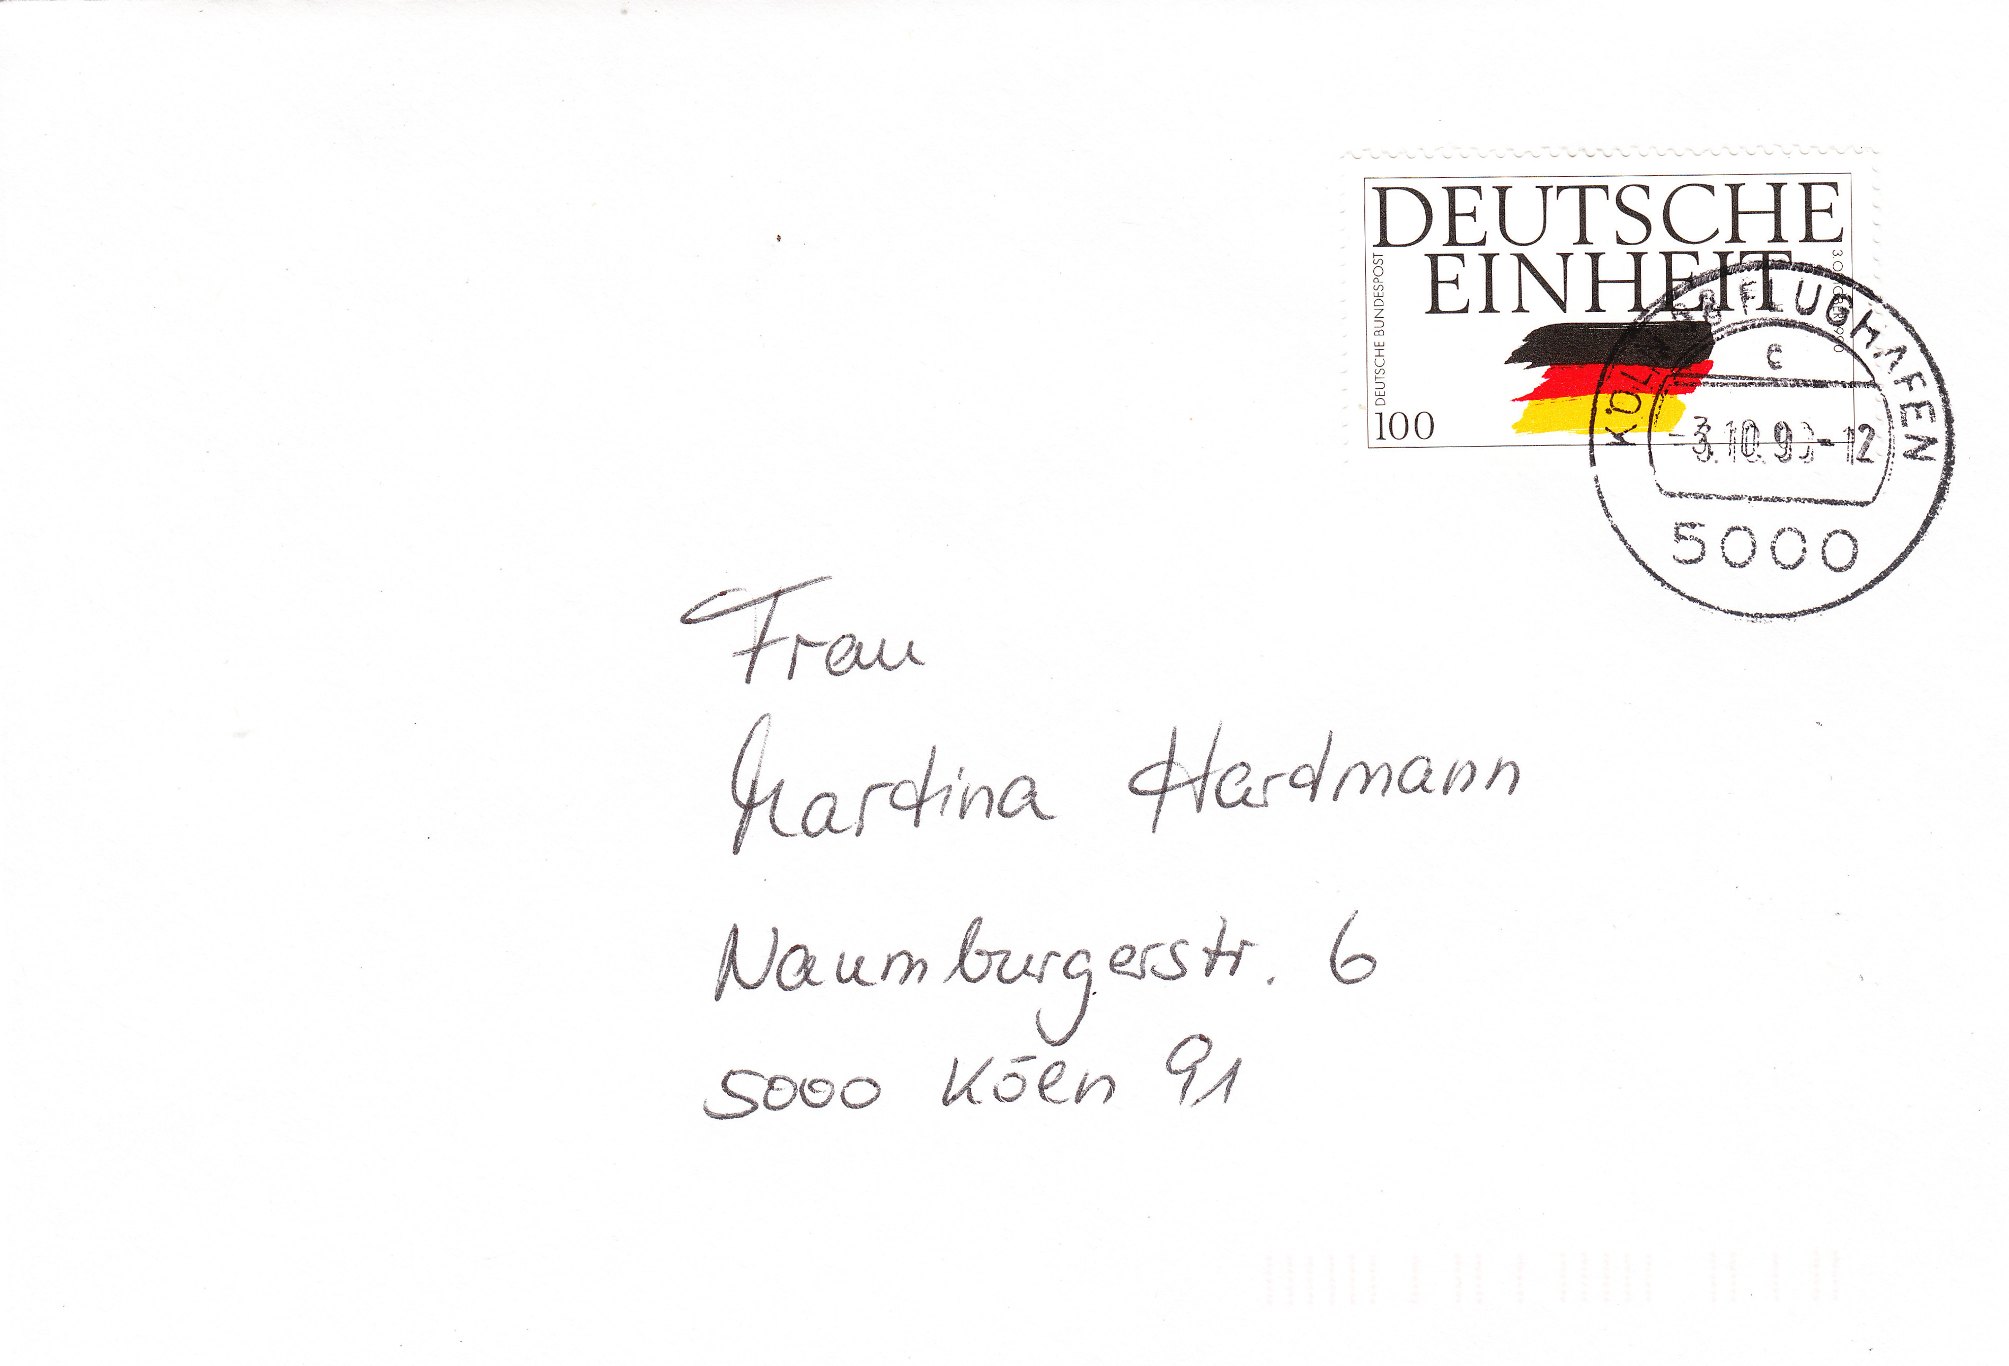 DEUTSCHE
EINHEIT
DEUTSCHE BUNDESPOST
3. OKTOBER 1990
100
KÖLN FLUGHAFEN
c
-3.10.90-12
5000
Frau
Martina Hardmann
Naumburgerstr. 6
5000 Köln 91